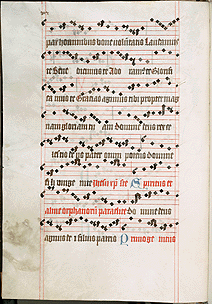 pax hominibus bone voluntatis Laudamus
te Bene dicimus te Ado ramus te Glorifi
ca mus te Gracias agimus tibi propter mag
nam gloriam tu am Domine deus rex ce
Domine
fi li vnige nite Spiritus et
alme orphanorum paraclite Do mine deus
agnus de i filius patris Primoge nitus